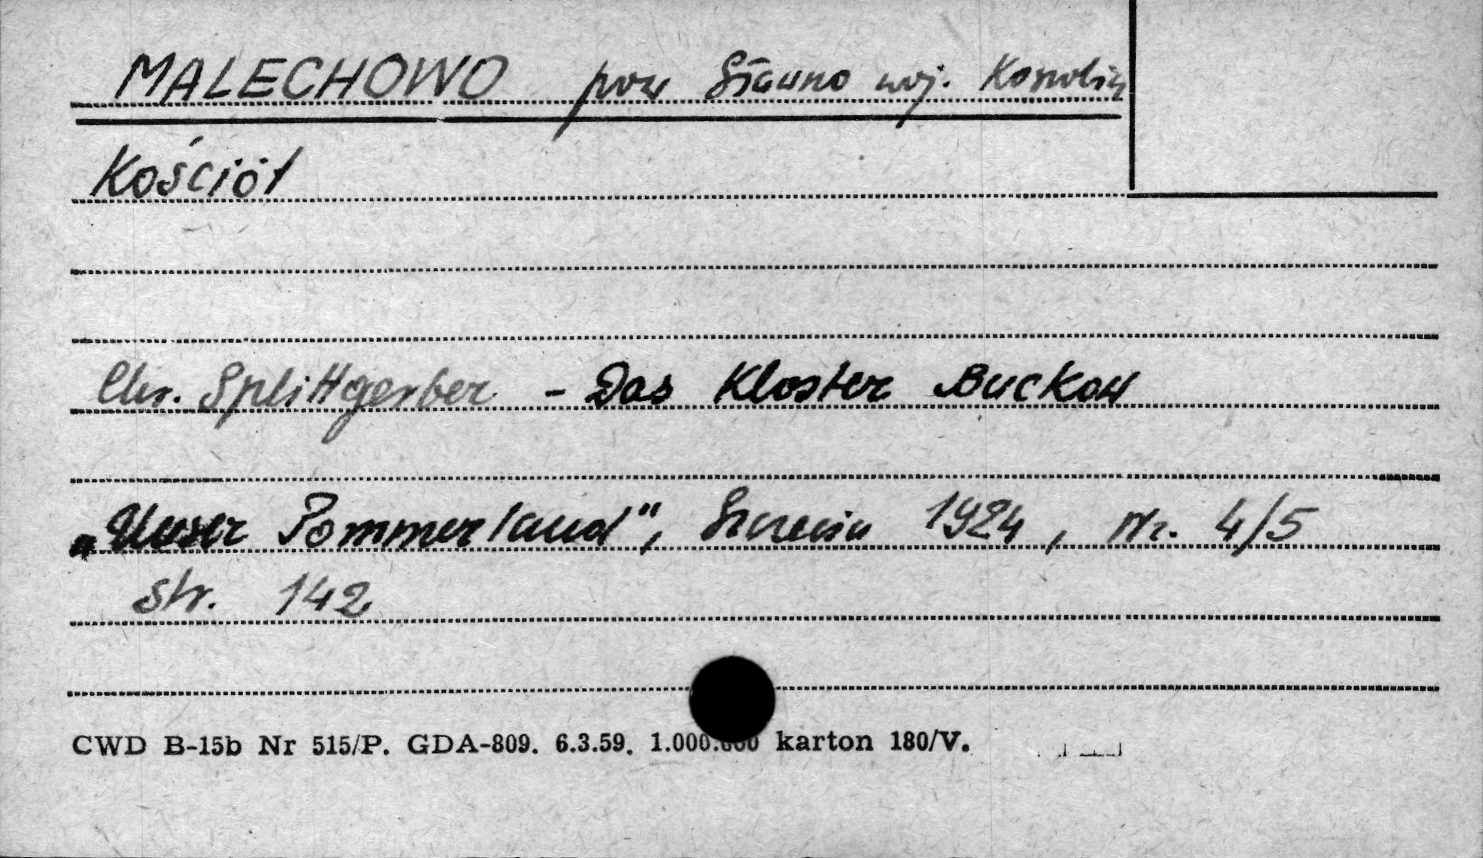 MALECHOWO pow Sławno woj. Koszalin
Kościół
Chr. Splittgerber - Das Kloster Buckow
„Unser Pommerland", Szczecin 1924, Nr. 4/5
str. 142
CWD B-15b Nr 515/P. GDA-809. 6.3.59. 1.000.000 karton 180/V.